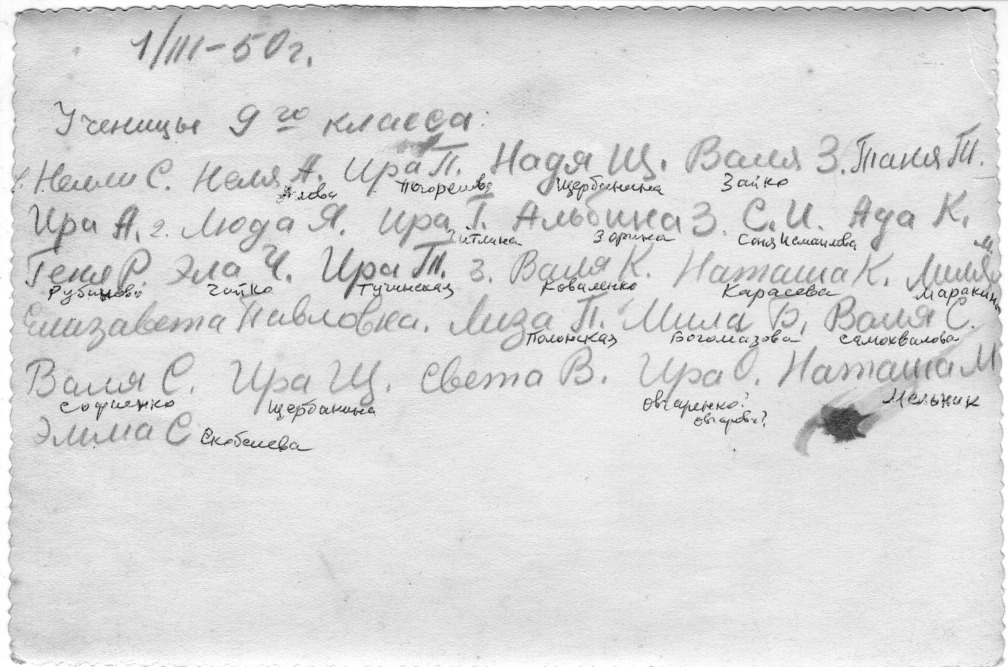 1/III-50г.
Ученицы 9го класса:
Нелли С. Неля А. Ира П. Надя Щ. Валя З. Таня Т.
Погорелова Щербанина Зайко
Ира А. 2. Люда Я. Ира Г. Альбина З. С. И. Ада К.
Зарина Соня Исмаилова
Геня Р. Эла Ч. Ира Т. З. Валя К. Наташа К. Лиля М.
Рубинова Чайко Тучинская Коваленко Карасева Маракина
Елизавета Павловна. Лиза П. Мила Б. Валя С.
Полонская Богомазова Самохвалова
Валя С. Ира Щ. Света В. Ира О. Наташа М
Софиенко Щербанина Овчаренко? Мельник
Овчарова?
Эмма С Скобелева